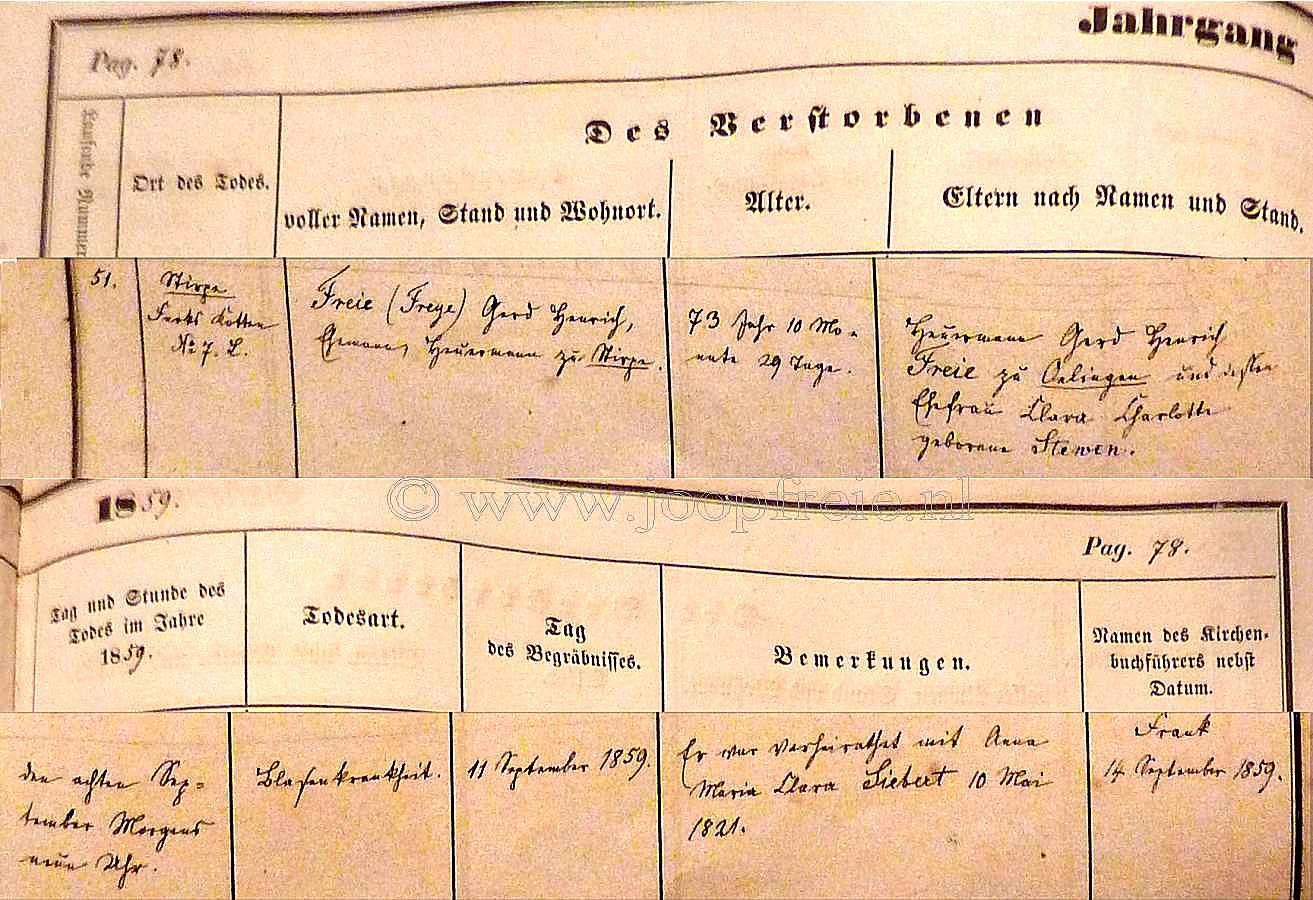 Jahrgang
Pag. 78.
Des Verstorbenen
Laufende Nummer
Ort des Todes.
voller Namen, Stand und Wohnort.
Alter.
Eltern nach Namen und Stand.
51.
Stirpe
Kotten
No 7. L.
Freie (Freye) Gerd Henrich,
Ehemann, Heuermann zu Stirpe.
73 Jahr 10 Mo-
nate 29 Tage.
Heuermann Gerd Henrich
Freie zu Oelingen und dessen
Ehefrau Clara Charlotte
geborene Stewen.
© www.joopfreie.nl
1859.
Pag. 78.
Tag und Stunde des
Todes im Jahre
1859.
Todesart.
Tag
des Begräbnisses.
Bemerkungen.
Namen des Kirchen-
buchführers nebst
Datum.
den achten Sep-
tember Morgens
neun Uhr.
Blasenkrankheit.
11 September 1859.
Er war verheirathet mit Anna
Maria Clara Siebert 10 Mai
1821.
Frank
14 September 1859.